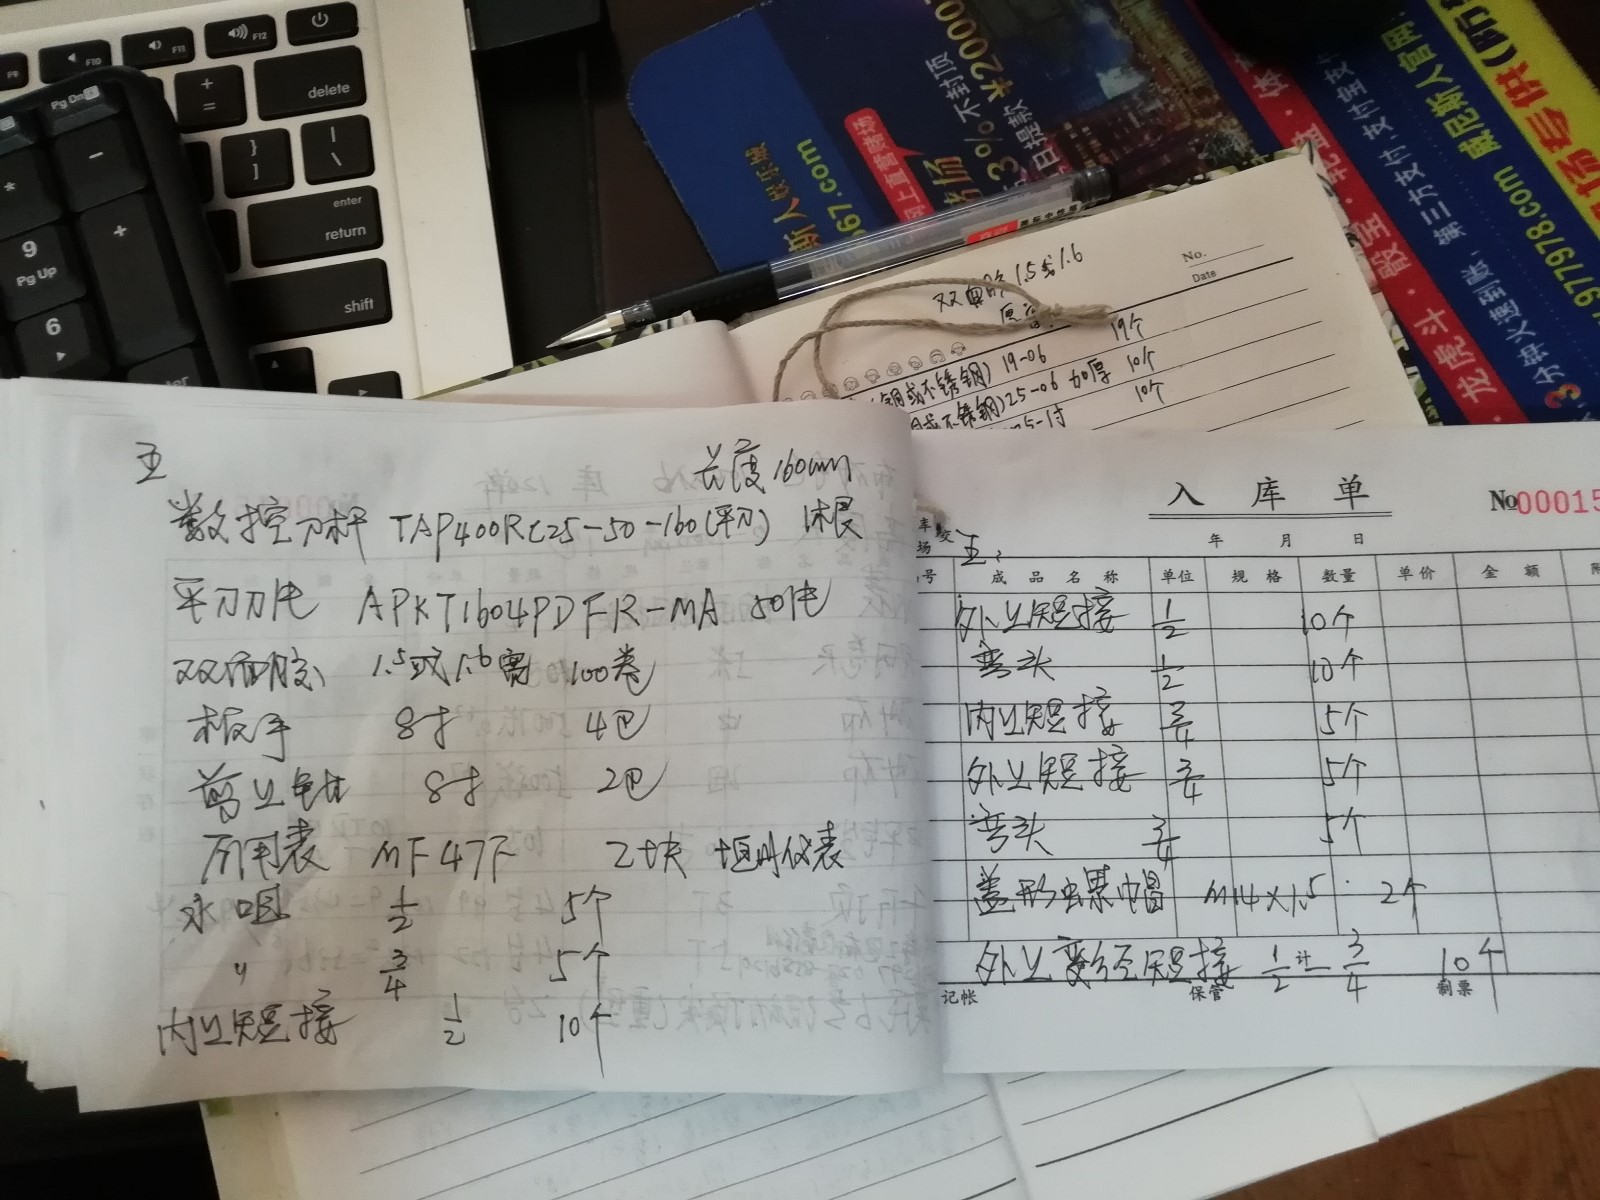 F9
F10
F11
F12
+
=
delete
}
]
|
\
enter
return
shift
Pg Dn
*
-
+
9
Pg Up
6
斯人
567.com
网上直营赌场
3%不封顶
日提款￥20000
No.
Date
1.5或1.6
19个
(铜或不锈钢)19-06
或不锈钢)25-06 60厚 10个
10个
龙虎斗·骰宝·轮盘·体
第三方支付 支付宝支付
3分钟火速到账
977978.com 威尼斯人官网
王
长度160mm
数控刀杆 TAP400RC25-50-160(平刀)
平刀刀片 APKT1604PDFR-MA 50片
双面胶 1.5或1.6宽 100卷
板手 8寸 4把
剪丝钳 8寸 2把
万用表 MF47F 2块 仪表
水咀 1/2 5个
〃 3/4 5个
内丝短接 1/2 10个
入库单
No00015
年 月 日
王:
号 成品名称 单位 规格 数量 单价 金额
外丝短接 1/2 10个
弯头 1/2 10个
内丝短接 3/4 5个
外丝短接 3/4 5个
弯头 3/4 5个
盖形螺帽 M14×1.5 2个
外丝变径短接 1/2 3/4 10个
记帐 保管 制票